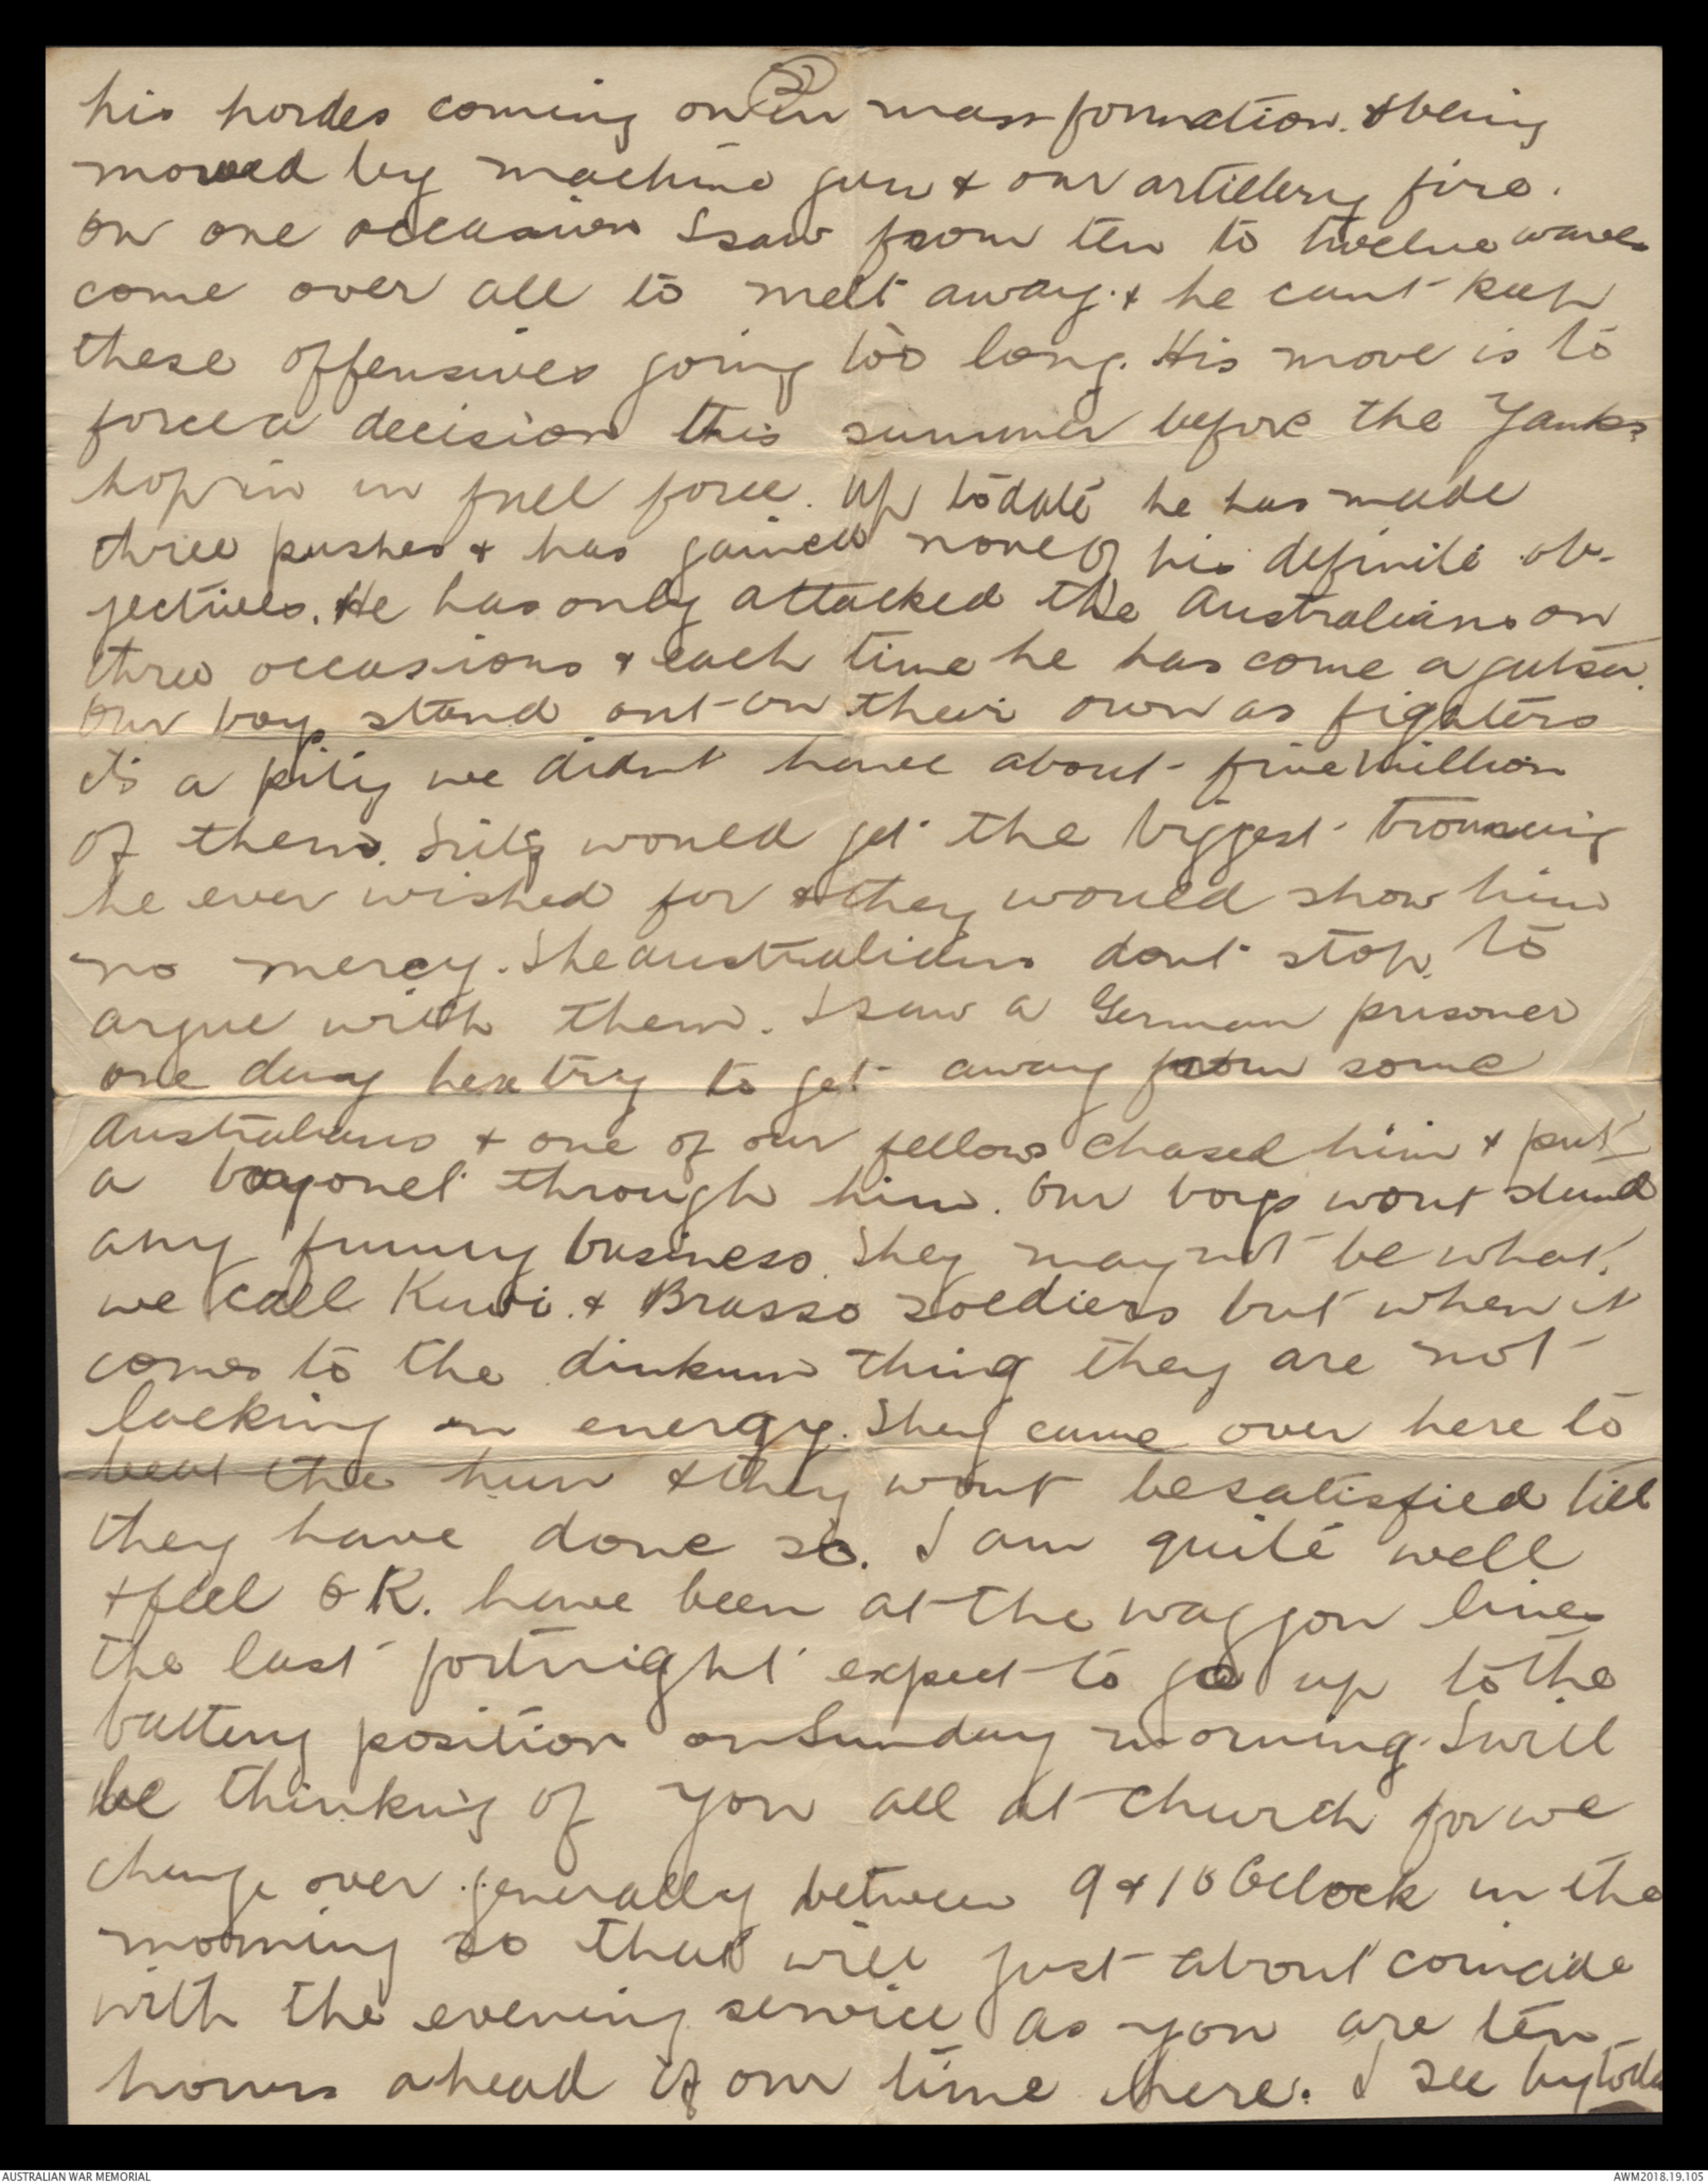 (3)
his hordes coming on in mass formation. & being
mowed by machine gun & our artillery fire.
On one occasion I saw from ten to twelve waves
come over all to melt away. & he cant keep
these offensives going too long. His move is to
force a decision this summer before the Yanks
hop in in full force. Up to date he has made
three pushes & has gained none of his definite ob-
jectives. He has only attacked the Australians on
three occasions & each time he has come a gutser.
Our boys stand out on their own as fighters
its a pity we didnt have about five million
of them. Fritz would get the biggest trouncing
he ever wished for & they would show him
no mercy. The Australians dont stop to
argue with them. I saw a German prisoner
one day try to get away from some
Australians & one of our fellows chased him & put
a bayonet through him. Our boys wont stand
any funny business. They may not be what
we call Kiwi. & Brasso soldiers but when it
comes to the dinkum thing they are not
lacking in energy. They came over here to
beat the hun & they wont be satisfied till
they have done so. I am quite well
& feel O K. have been at the waggon lines
the last fortnight expect to go up to the
battery position on Sunday morning. I will
be thinking of you all at church for we
change over generally between 9 & 10 Oclock in the
morning so that will just about coincide
with the evening service as you are ten
hours ahead of our time here. I see by
AUSTRALIAN WAR MEMORIAL
AWM2018.19.105